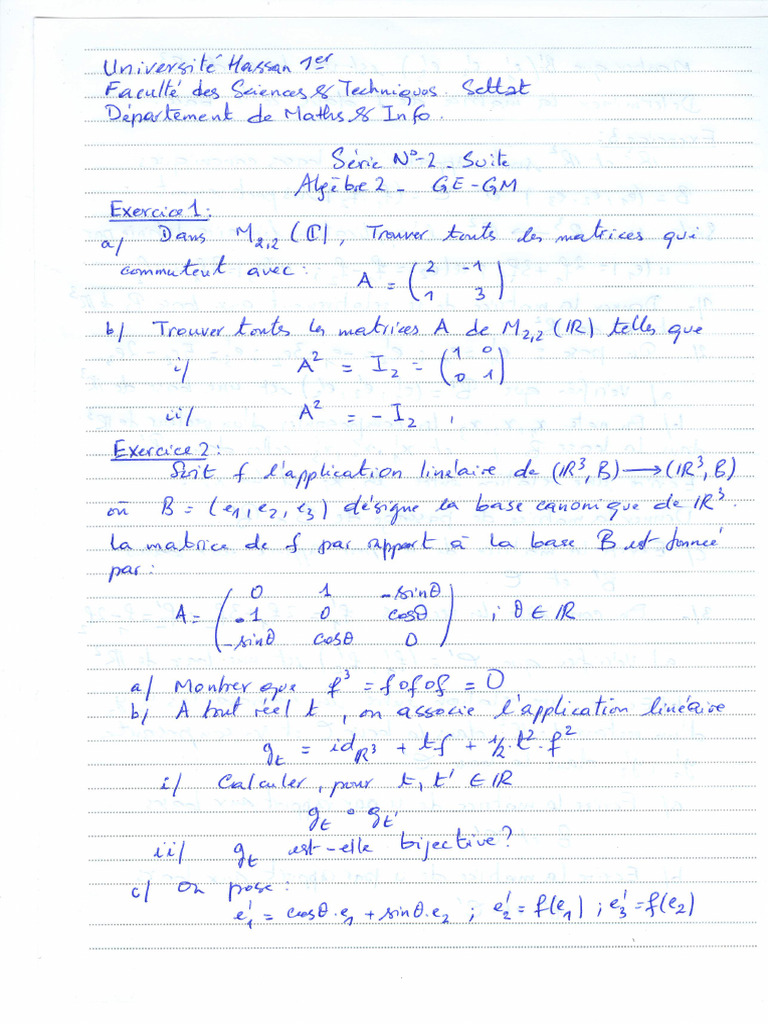 Université Hassan 1er
Faculté des Sciences & Techniques. Settat
Département de Maths & Info.
Série N°-2-Suite
Algèbre 2 - GE-GM
Exercice 1:
a/ Dans M2,2 (ℂ), Trouver touts les matrices qui
commutent avec: A = ( 2 -1
1 3 )
b/ Trouver touts les matrices A de M2,2 (IR) telles que
i/ A² = I2 = ( 1 0
0 1 )
ii/ A² = - I2 ,
Exercice 2:
Soit f l'application linéaire de (IR³, B) → (IR³, B)
où B = (e1, e2, e3) désigne la base canonique de IR³.
la matrice de f par rapport à la base B est donnée
par:
0 1 -sinθ
A = ( -1 0 cosθ ) ; θ ∈ IR
-sinθ cosθ 0
a/ Montrer que f³ = fofof = O
b/ A tout réel t, on associe l'application linéaire
gt = idIR³ + tf + 1/2·t²·f²
i/ Calculer, pour t, t' ∈ IR
gt ∘ gt'
iii/ gt est-elle bijective?
c/ On pose:
e'1 = cosθ·e1 + sinθ·e2 ; e'2 = f(e1) ; e'3 = f(e2)